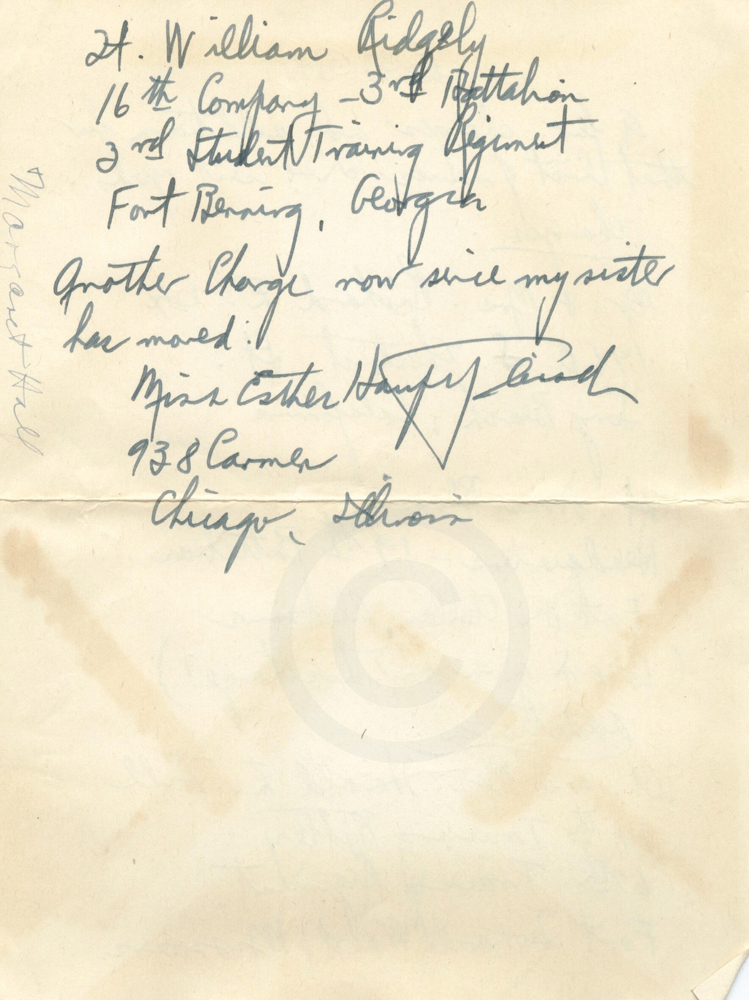 Lt. William Ridgely
16th Company - 3rd Battalion
3rd Student Training Regiment
Fort Benning, Georgia
Another Change now since my sister
has moved:
Miss Esther Haupfleisch
938 Carmen
Chicago, Illinois
Margaret Hall